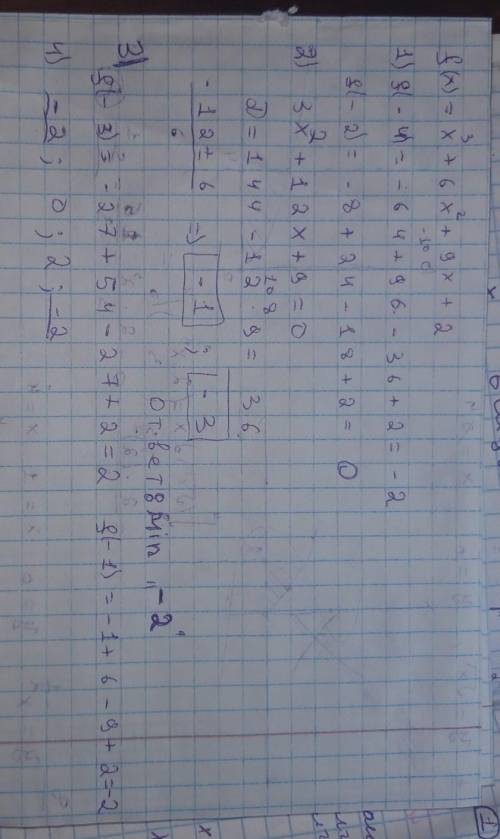 f(x) = x³ + 6x² + 9x + 2
-100
1) f(-4) = -64 + 96 - 36 + 2 = -2
f(-2) = -8 + 24 - 18 + 2 = 0
2) 3x² + 12x + 9 = 0
D = 144 - 12 · 9 = 36
108
-12 ± 6 => -1; -3
6
Ответ: min "-2"
3) f(-3) = -27 + 54 - 27 + 2 = 2 f(-1) = -1 + 6 - 9 + 2 = -2
4) -2; 0; 2; -2